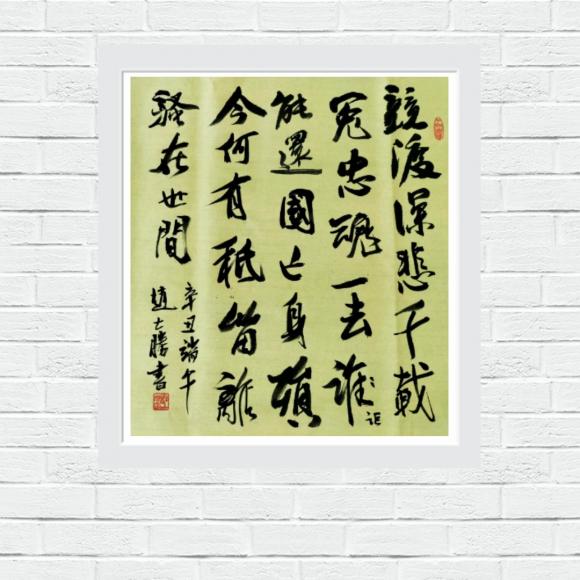 競渡深悲千載
冤忠魂一去誰詎
能還國亡身殞
今何有秪留離
騷在世間
辛丑端午
趙士勝書